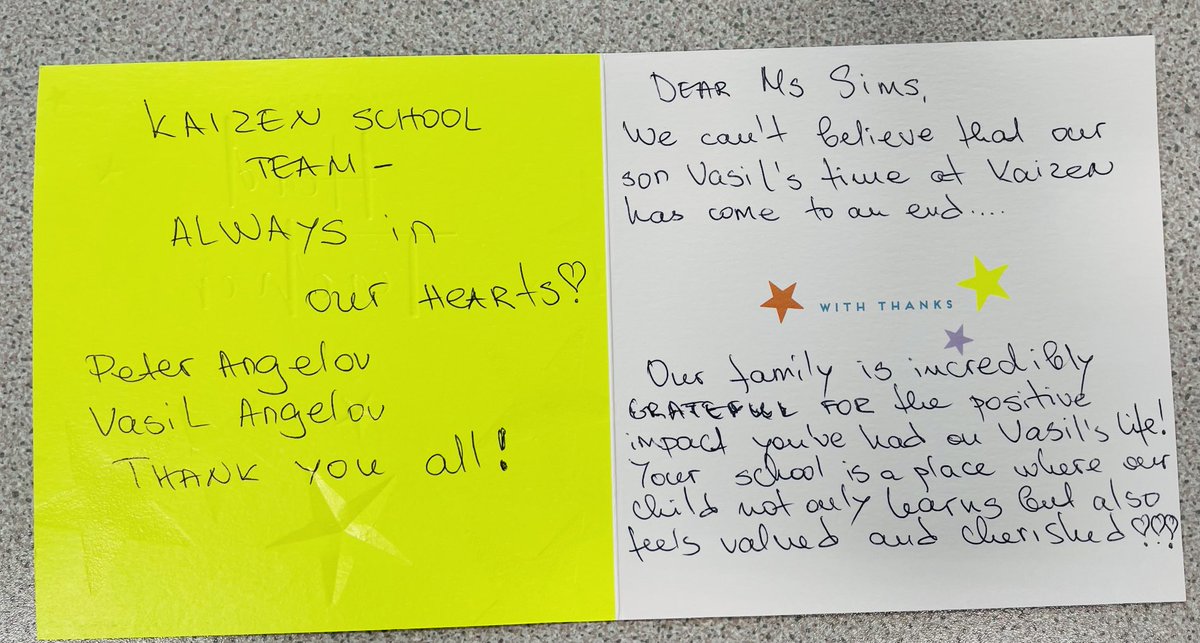 KAIZEN SCHOOL
TEAM –
ALWAYS in
our HEARTS♡
Peter Angelov
Vasil Angelov
THANK YOU all!
DEAR Ms Sims,
We can't believe that our
son Vasil's time at Kaizen
has come to an end....
WITH THANKS
Our family is incredibly
GRATEFULL FOR the positive
impact you've had on Vasil's life!
Your school is a place where our
child not only learns but also
feels valued and cherished♡♡♡